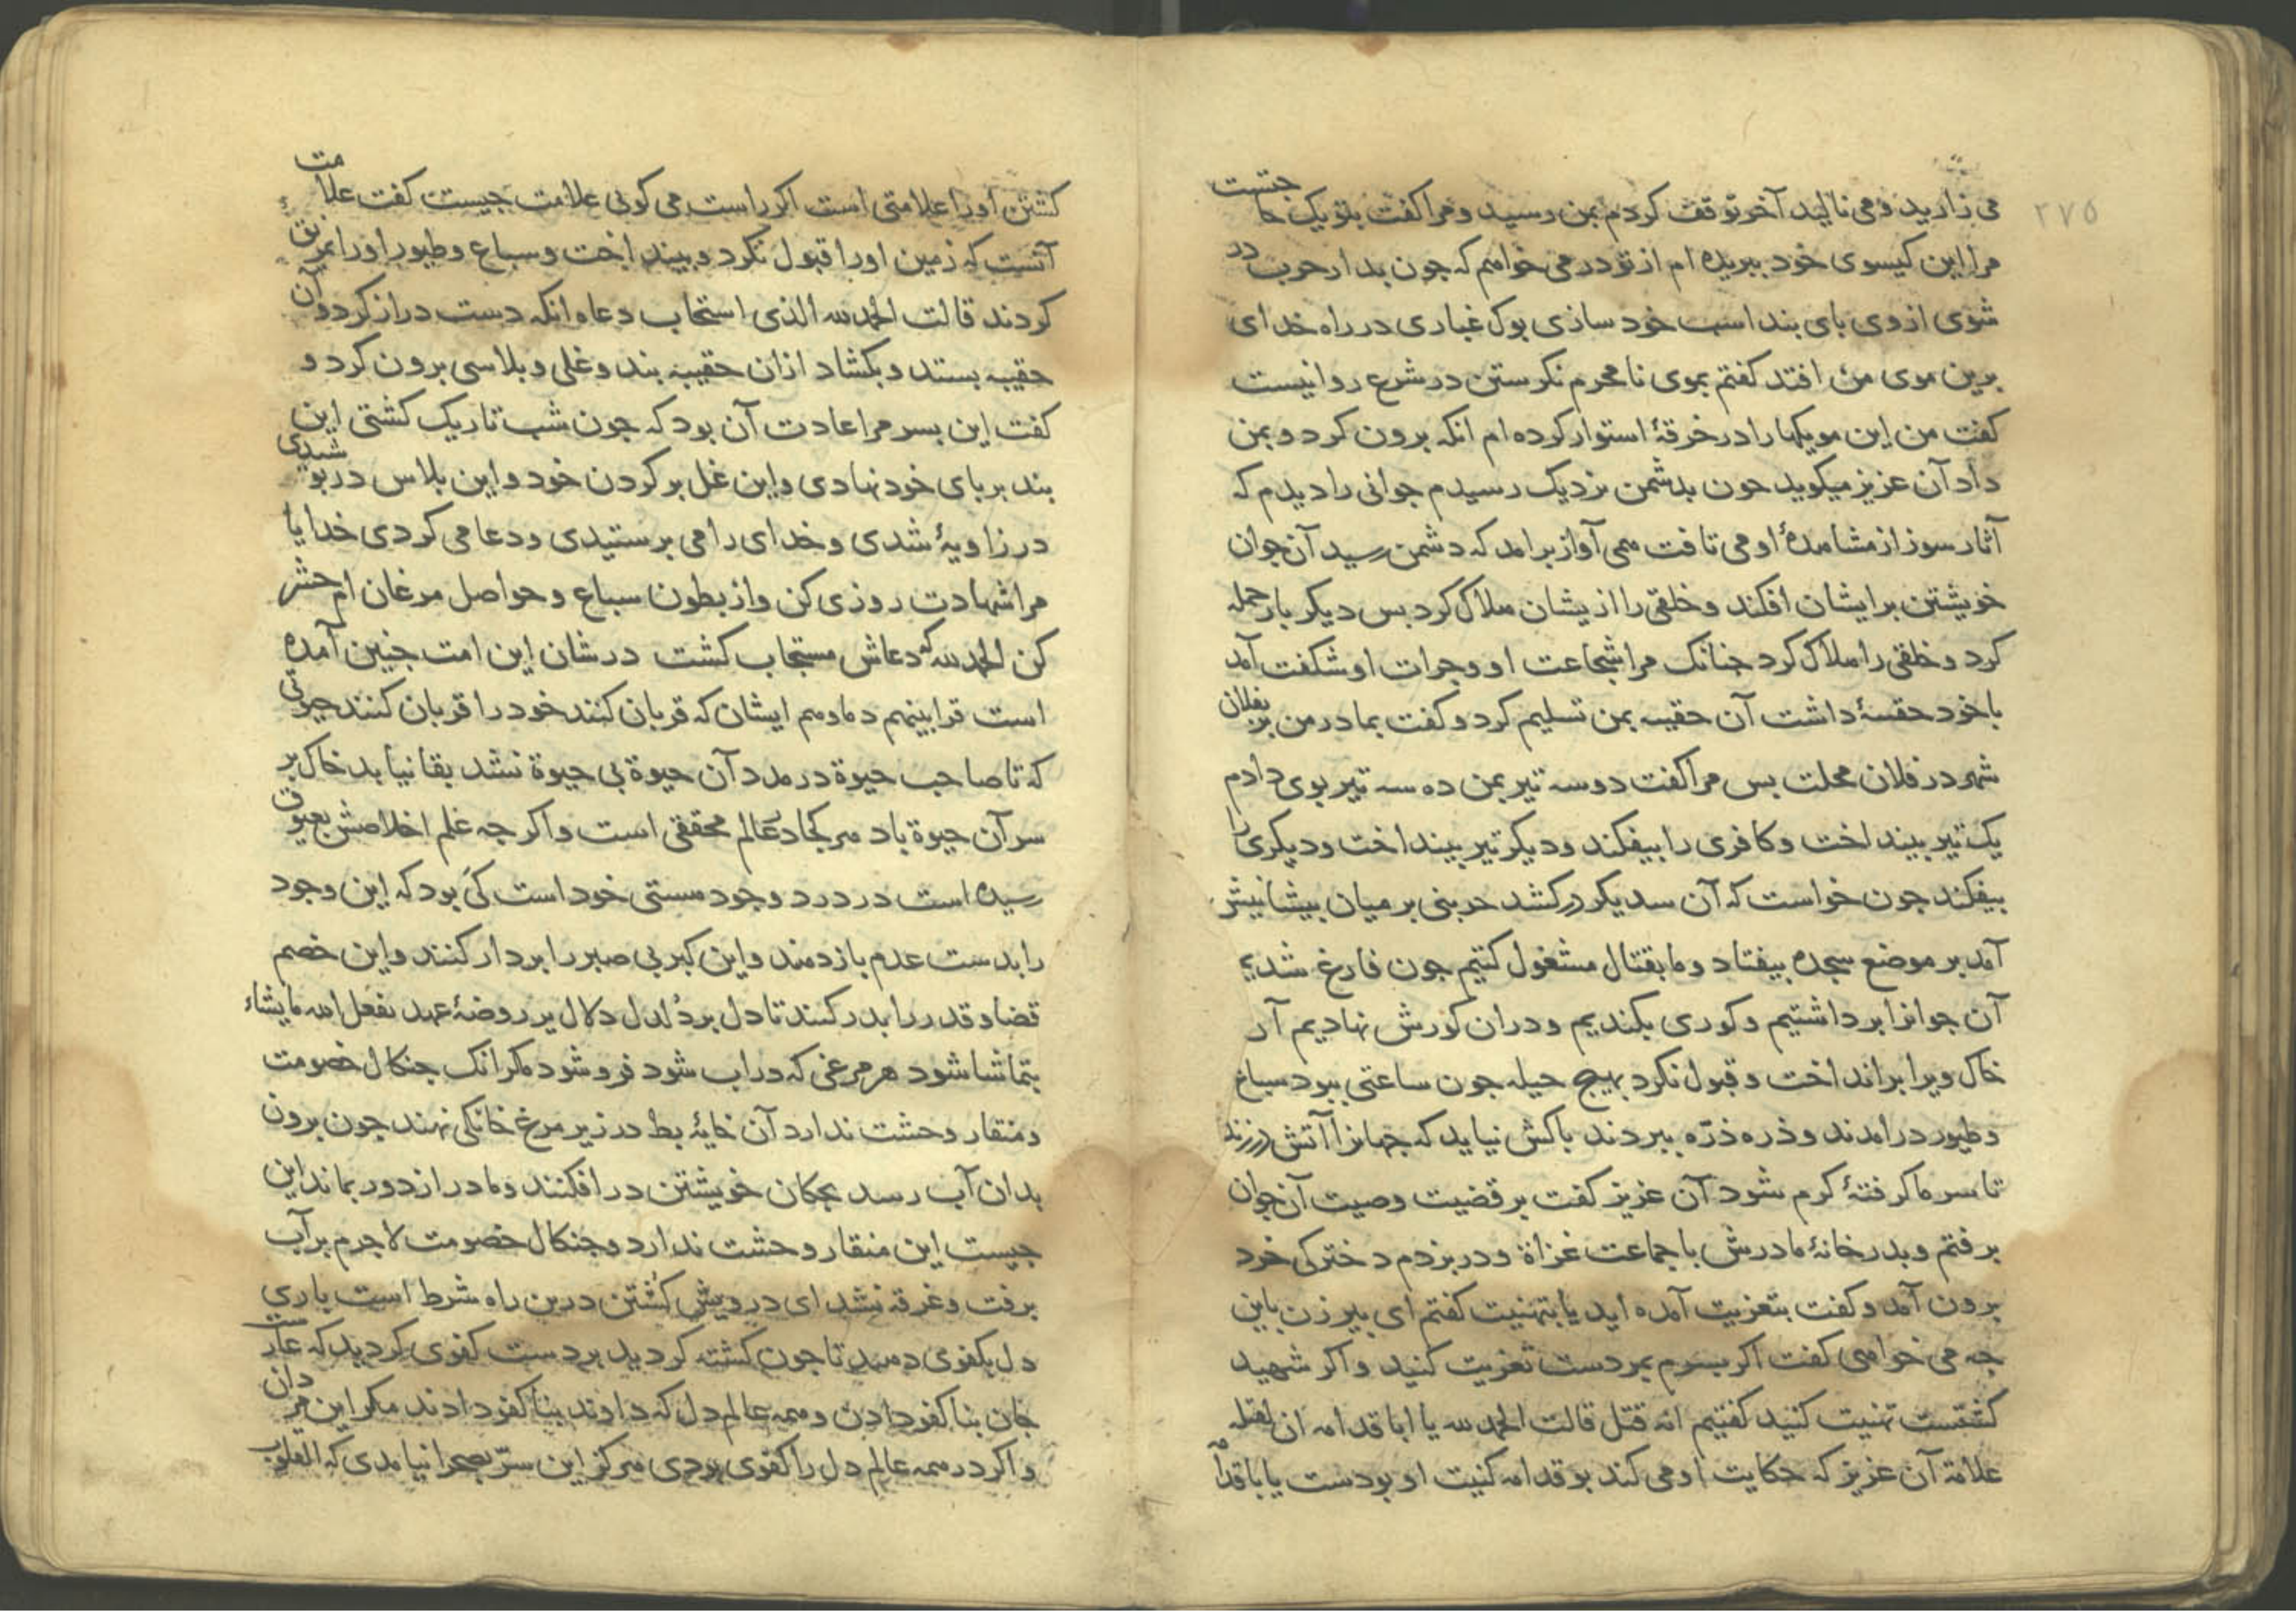 ۲۷۵
می زارید و می نالید آخر توقف کردم بمن رسید و مرا کفت بتو یک حاجتست
مرا این کیسوی خود ببریده ام از تو در می خواهم که جون بدار حرب در
شوی ازوی بای بند اسب خود سازی بوک غباری در راه خدای
برین موی من افتد کفتم بموی نامحرم نکرستن در شرع روا نیست
کفت من این مویکها را در خرقۀ استوار کرده ام انکه برون کرد و بمن
داد آن عزیز میکوید جون بدشمن نزدیک رسیدم جوانی را دیدم که
آثار سوز از مشاهدۀ او می تافت همی آواز برامد که دشمن رسید آن جوان
خویشتن بر ایشان افکند و خلقی را از یشان هلاک کرد بس دیکر بار حمله
کرد و خلقی را هلاک کرد جنانک مرا شجاعت او و جرات او شکفت آمد
با خود حقیبۀ داشت آن حقیبه بمن تسلیم کرد و کفت بمادر من بر بفلان
شهر در فلان محلت بس مرا کفت دو سه تیر بمن ده سه تیر بوی دادم
یک تیر بینداخت و کافری را بیفکند و دیکر تیر بینداخت و دیکری را
بیفکند جون خواست که آن سدیکر در کشد حربئی بر میان بیشانیش
آمد بر موضع سجده بیفتاد و ما بقتال مشغول کشتیم جون فارغ شدیم
آن جوانرا برداشتیم و کوری بکندیم و دران کورش نهادیم آن
خاک ویرا برانداخت و قبول نکرد بهیج حیله جون ساعتی ببود سباع
و طیور درامدند و ذره ذرّه ببردند باکش نیاید که جهانرا آتش در زند
تا سرما کرفتۀ کرم شود آن عزیز کفت بر قضیت وصیت آن جوان
برفتم و بدر خانۀ مادرش با جماعت غزاة و در بزدم دخترکی خرد
برون آمد و کفت بتعزیت آمده اید یا بتهنیت کفتم ای بیر زن باین
جه می خواهی کفت اکر بسرم بمردست تعزیت کنید و اکر شهید
کشتست تهنیت کنید کفتیم انه قتل قالت الحمد لله یا ابا قدامه ان لقتله
علامة آن عزیز که حکایت او می کند بو قدامه کنیت او بودست یا با قدامه
کشتن او را علامتی است اکر راست می کوئی علامت جیست کفت علامت
آنست که زمین او را قبول نکرد و بینداخت و سباع و طیور او را بمزق
کردند قالت الحمد لله الذی استجاب دعاه انکه دست دراز کرد و آن
حقیبه بستد و بکشاد ازان حقیبه بند و غلی و بلاسی برون کرد و
کفت این بسر مرا عادت آن بود که جون شب تاریک کشتی این
بند بر بای خود نهادی و این غل بر کردن خود و این بلاس در بوشیدی
در زاویۀ شدی و خدای را می برستیدی و دعا می کردی خدایا
مرا شهادت روزی کن و از بطون سباع و حواصل مرغان ام حشر
کن الحمد لله که دعاش مستجاب کشت در شان این امت جنین آمده
است قرابینهم دماوهم ایشان که قربان کنند خود را قربان کنند حیوتی
که تا صاحب حیوة در مدد آن حیوة بی حیوة نشد بقا نیابد خاک بر
سر آن حیوة باد هر کجا در عالم محققی است و اکر جه علم اخلاصش بعیوق
رسیده است در درد وجود هستی خود است کی بود که این وجود
را بدست عدم باز دهند و این کبر بی صبر را بردار کنند و این خصم
قضا و قدر را بدر کنند تا دل بر دُلدل دلال بر روضۀ عهد یفعل الله ما یشاء
بتماشا شود هر مرغی که دراب شود فرو شود مکر انک جنکال خصومت
و منقار وحشت ندارد آن خایۀ بط در زیر مرغ خانکی نهند جون برون
بدان آب رسد بجکان خویشتن درافکنند و مادر از دور بماند این
جیست این منقار وحشت ندارد و جنکال خصومت لاجرم بر آب
برفت و غرقه نشد ای درویش کشتن درین راه شرط است باری
دل بکفوی دهید تا جون کشته کردید بر دست کفوی کردید که عارست
جان بنا کفو دادن و همه عالم دل که دادند بنا کفو دادند مکر این مردان
و اکر در همه عالم دل را کفوی بودی هرکز این سرّ بصحرا نیامدی که القلوب